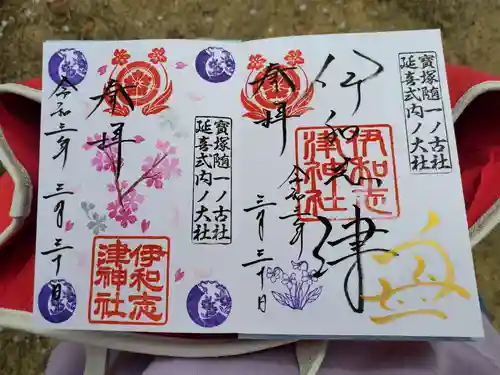 宝塚随一ノ古社
延喜式内ノ大社
伊和志津
伊和志
津神社
奉拝
令和三年
三月三十日
宝塚随一ノ古社
延喜式内ノ大社
奉拝
伊和志
津神社
令和三年
三月三十日